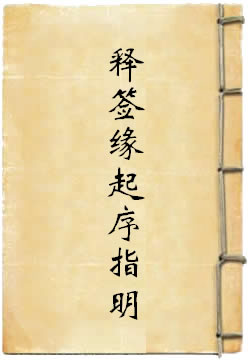 释签缘起序指明